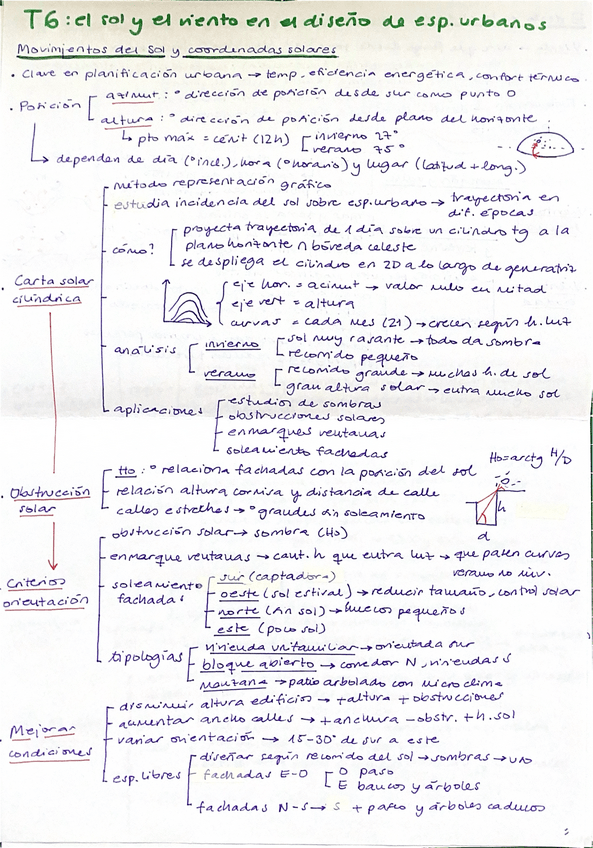 T6: el sol y el viento en el diseño de esp. urbanos
Movimientos del Sol y coordenadas solares
· Clave en planificación urbana → temp, eficiencia energética, confort térmico
· Posición
azimut: º dirección de posición desde sur como punto 0
altura: º dirección de posición desde plano del horizonte
↳ pto máx = cénit (12h)
invierno 27º
verano 75º
↳ dependen de día (º incl.), hora (º horario) y lugar (latitud + long.)
· Carta solar cilíndrica
método representación gráfico
estudia incidencia del sol sobre esp. urbano → trayectoria en dif. épocas
cómo?
proyecta trayectoria de 1 día sobre un cilindro tg a la
plano horizonte ∩ bóveda celeste
se despliega el cilindro en 2D a lo largo de generatriz
eje hor. = acimut → valor nulo en mitad
eje vert = altura
curvas = cada mes (21) → crecen según h. luz
análisis
invierno
sol muy rasante → todo da sombra
recorrido pequeño
verano
recorrido grande → muchas h. de sol
gran altura solar → entra mucho sol
aplicaciones
estudios de sombras
obstrucciones solares
enmarques ventanas
soleamiento fachadas
· Obstrucción solar
Ho: º relaciona fachadas con la posición del sol
Ho = arctg H/D
relación altura cornisa y distancia de calle
calles estrechas → º grandes sin soleamiento
h
d
· Criterios orientación
obstrucción solar → sombra (Ho)
enmarque ventanas → cant. h que entra luz → que paren curvas
verano no inv.
soleamiento fachadas
sur (captadora)
oeste (sol estival) → reducir tamaño, control solar
norte (sin sol) → huecos pequeños
este (poco sol)
tipologías
vivienda unifamiliar → orientada sur
bloque abierto → comedor N, viviendas S
manzana → patio arbolado con microclima
· Mejorar condiciones
disminuir altura edificio → + altura + obstrucciones
aumentar ancho calles → + anchura - obstr. + h. sol
variar orientación → 15-30º de sur a este
esp. libres
diseñar según recorrido del sol → sombras → uso
fachadas E-O
O paso
E bancos y árboles
fachadas N-S → S + paseo y árboles caducos